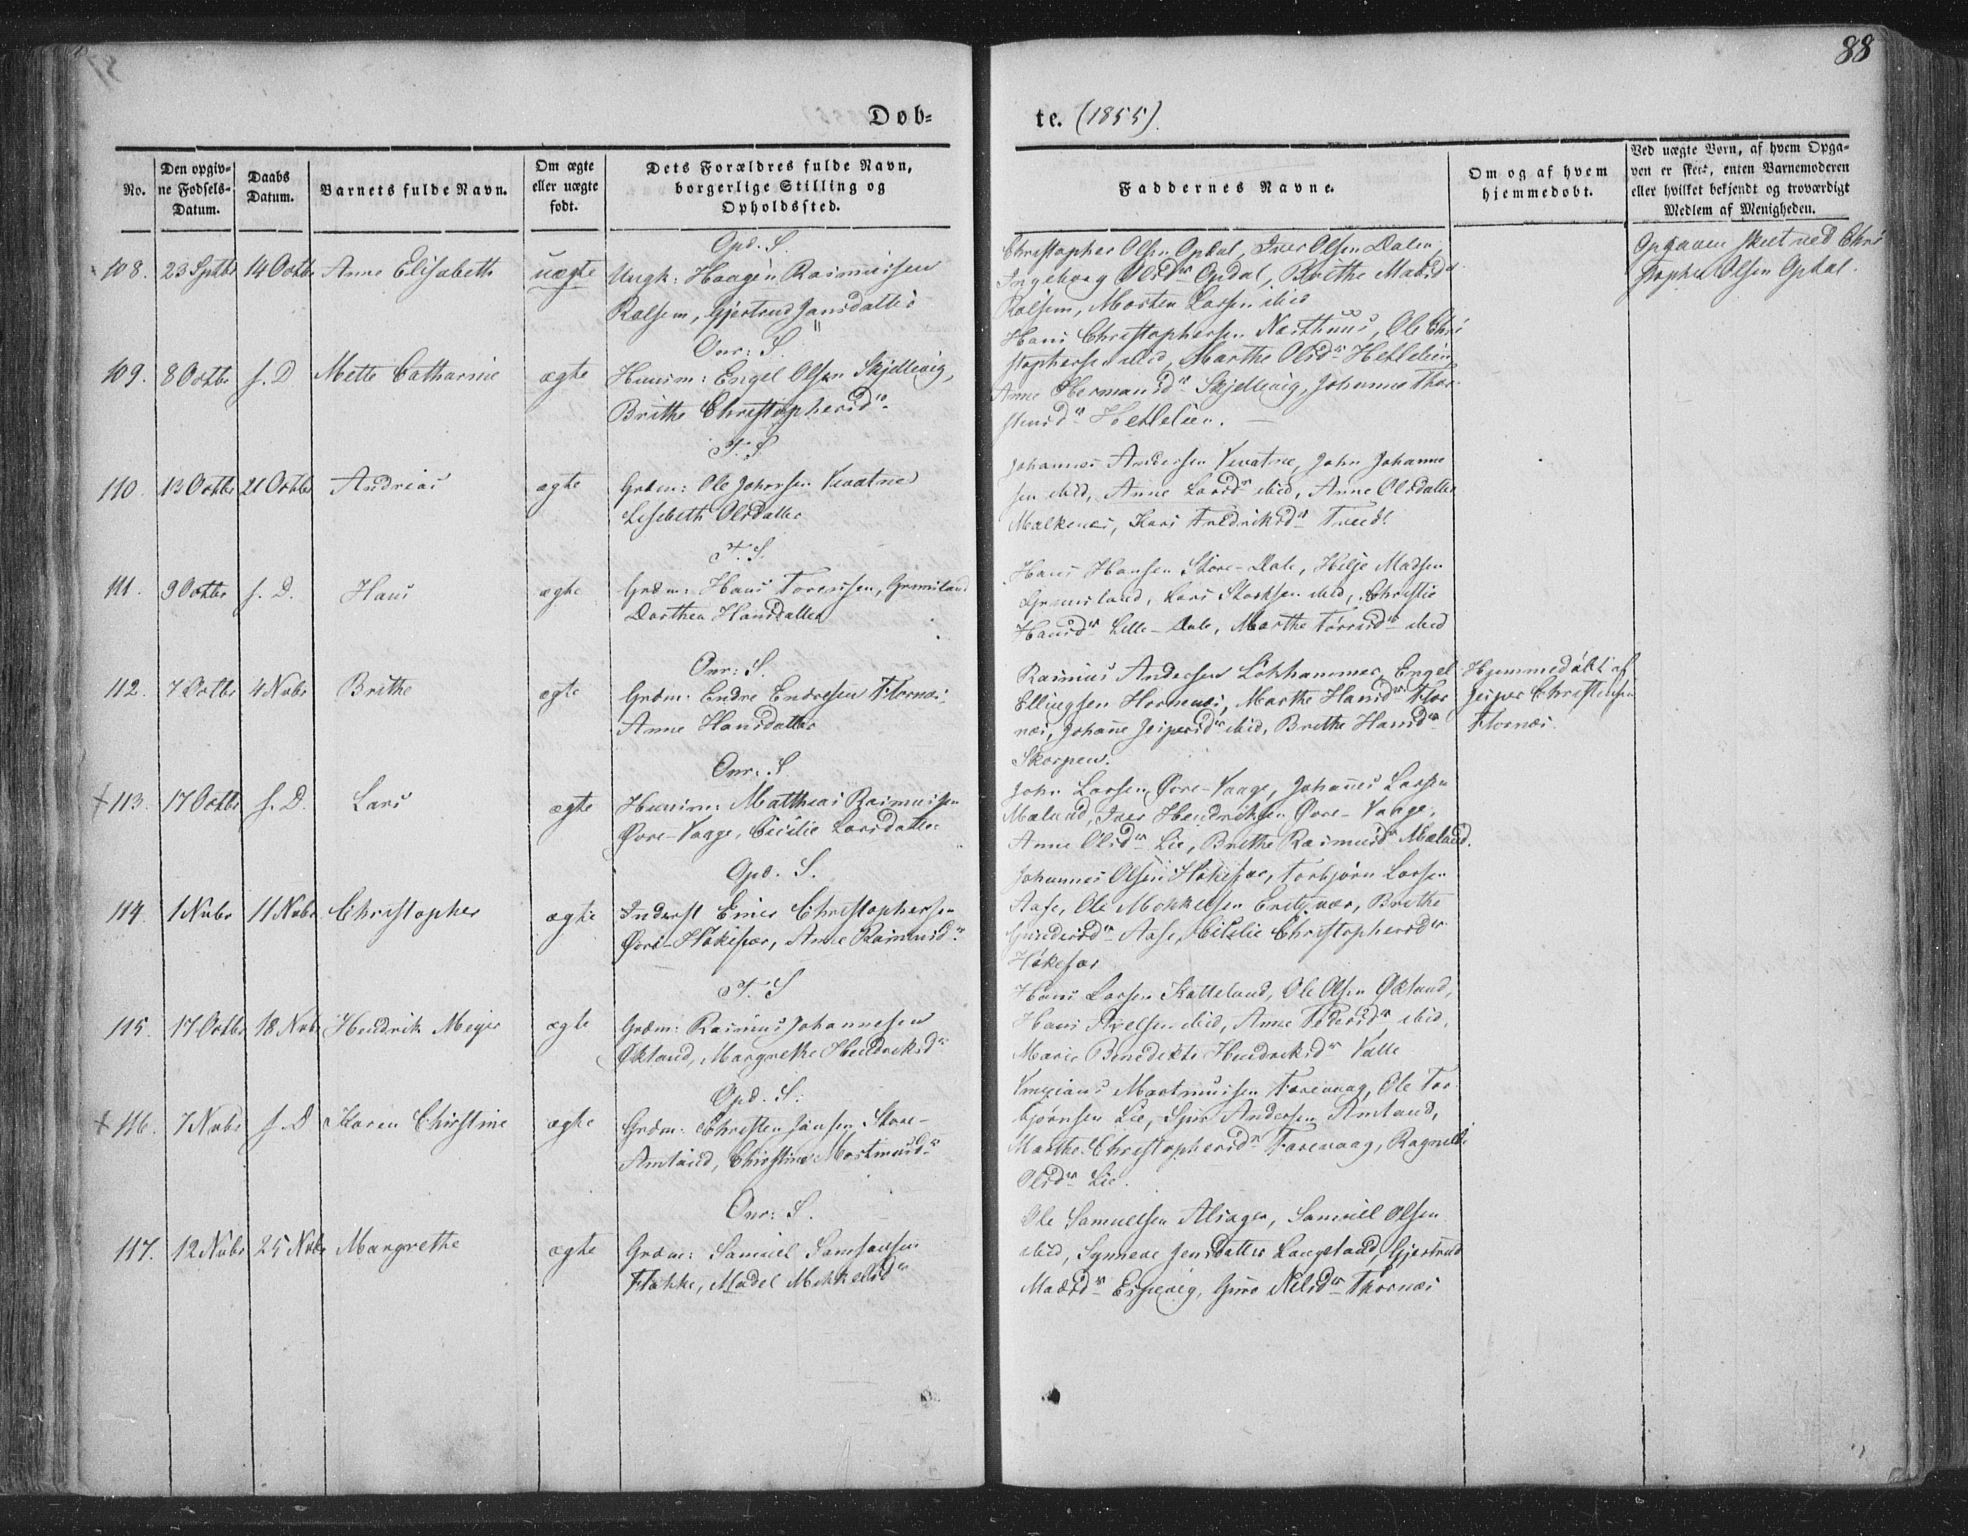 88
Døb-
te. (1855).
No.
Den opgiv-
ne Fødsels-
Datum.
Daabs
Datum.
Barnets fulde Navn.
Om ægte
eller uægte
født.
Dets Forældres fulde Navn,
borgerlige Stilling og
Opholdssted.
Faddernes Navne.
Om og af hvem
hjemmedøbt.
Ved uægte Børn, af hvem Opga-
ven er skeet, enten Barnemoderen
eller hvilket bekjendt og troværdigt
Medlem af Menigheden.
108. 23 Sptbr 14 Octbr Anne Elisabeth uægte
Opd. S.
Ungk: Haagen Rasmussen
Ralsem, Gjertrud Jansdatter
Christopher Olsen Opdal, Iver Olsen Dalen,
Ingeborg Olsdr Opdal, Brithe Madsdr
Ralsem, Morten Larsen ibid
Opgaven skeet ved Chri
stopher Olsen Opdal.
109. 8 Octbr s. D. Mette Catharine ægte
Onr: S.
Huusm: Engel Olsen Skjellevig,
Brithe Christophersdr
Hans Christophersen Næsthuus, Ole Chri
stophersen ibid, Marthe Olsdr Hetlelien
Anne Hermansdr Skjellevig, Johanne Thor-
stensdr Hetlelien.
110. 13 Octbr 21 Octbr Andreas ægte
T. S.
Grdm: Ole Johnsen Kvatnæ
Lisebeth Olsdatter
Johannes Andersen Kevatne, John Johanne
sen ibid, Anne Larsdr ibid, Anne Olsdatter
Malkenes, Kari Fredriksdr Tveit
111. 9 Octbr s. D. Hans ægte
T. S.
Grdm: Hans Toressen, Grimsland
Dorthea Hansdatter
Hans Hansen Store-Dale, Hilje Madsen
Grimsland, Lars Larsen ibid, Christie
Hansdr Lille-Dale, Marthe Tørrisdr ibid
112. 7 Octbr 4 Nvbr Brithe ægte
Onr: S.
Grdm: Endre Endresen Flornæs,
Anne Hansdatter
Rasmus Andersen Løkhammer, Engel
Ellingsen Hornenæs, Marthe Hansdr Flor
næs, Johanne Jespersdr ibid, Brithe Hansdr
Skorpen.
Hjemmedøbt af
Jesper Christensen
Flornæs
113. 17 Octbr s. D. Lars ægte
Onr: S.
Huusm: Matthias Rasmussen
Øvre-Vaage, Cicilie Larsdatter
John Larsen Øvre-Vaage, Johannes Larsen
Mæland, Iver Hendriksen Øvre-Vaage,
Anne Olsdr Lie, Brithe Rasmusdr Mæland.
114. 1 Nvbr 11 Nvbr Christopher ægte
Opd. S.
Inderst Einer Christophersen
Øvre-Høkefær, Anne Rasmusdr
Johannes Olsen Høkefær, Torbjørn Larsen
Aase, Ole Mikkelsen Engevær, Brithe
Gundersdr Aase, Cicilie Christophersdr
Høkefær
115. 17 Octbr 18 Nvbr Hendrik Meyer ægte
T. S
Grdm: Rasmus Johannesen
Økland, Margrethe Hendriksdr
Hans Larsen Katteland, Ole Olsen Økland,
Hans Axelsen ibid, Anne Pedersdr ibid,
Marie Benedikte Hendriksdr Valle
116. 7 Nvbr s. D Karen Christine ægte
Opd. S.
Grdm: Christen Jansen Store-
Amland, Christine Mortmusdr
Mortmussen Farevaag, Ole Tor
bjørnsen Lie, Sjur Andersen Amland,
Marthe Christophersdr Farevaag, Ragnilde
Olsdr Lie.
117. 12 Nvbr 25 Nvbr Margrethe ægte
Onr: S.
Grdm: Samuel Samsonsen
Flakke, Madel Mikkelsdr
Ole Samuelsen Alsager, Samuel Olsen
ibid, Synneve Jensdatter Langeland, Gjertrud
Madsdr Espevig, Guro Nilsdr Thornæs